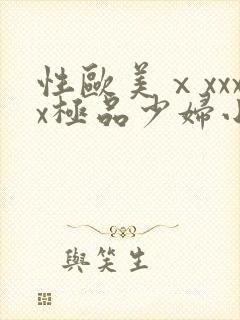 性歐美ⅹxxx
x極品少婦小
與笑生